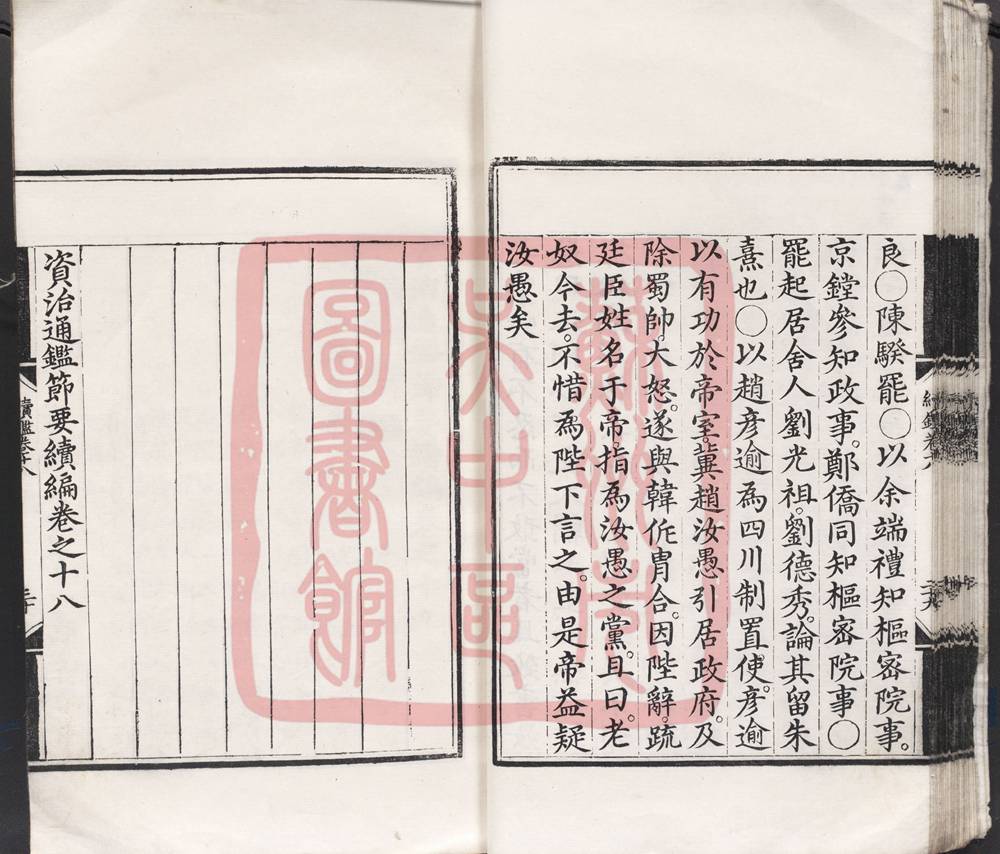 良○陳騤罷○以余端禮知樞密院事。
京鏜參知政事。鄭僑同知樞密院事○
罷起居舍人劉光祖。劉德秀。論其留朱
熹也○以趙彥逾爲四川制置使。彥逾
以有功於帝室。冀趙汝愚引居政府。及
除蜀帥。大怒。遂與韓侂胄合。因陛辭。疏
廷臣姓名于帝。指爲汝愚之黨。且曰。老
奴今去。不惜爲陛下言之。由是帝益疑
汝愚矣
資治通鑑節要續編卷之十八
續鑑卷十八
三十
圖書館